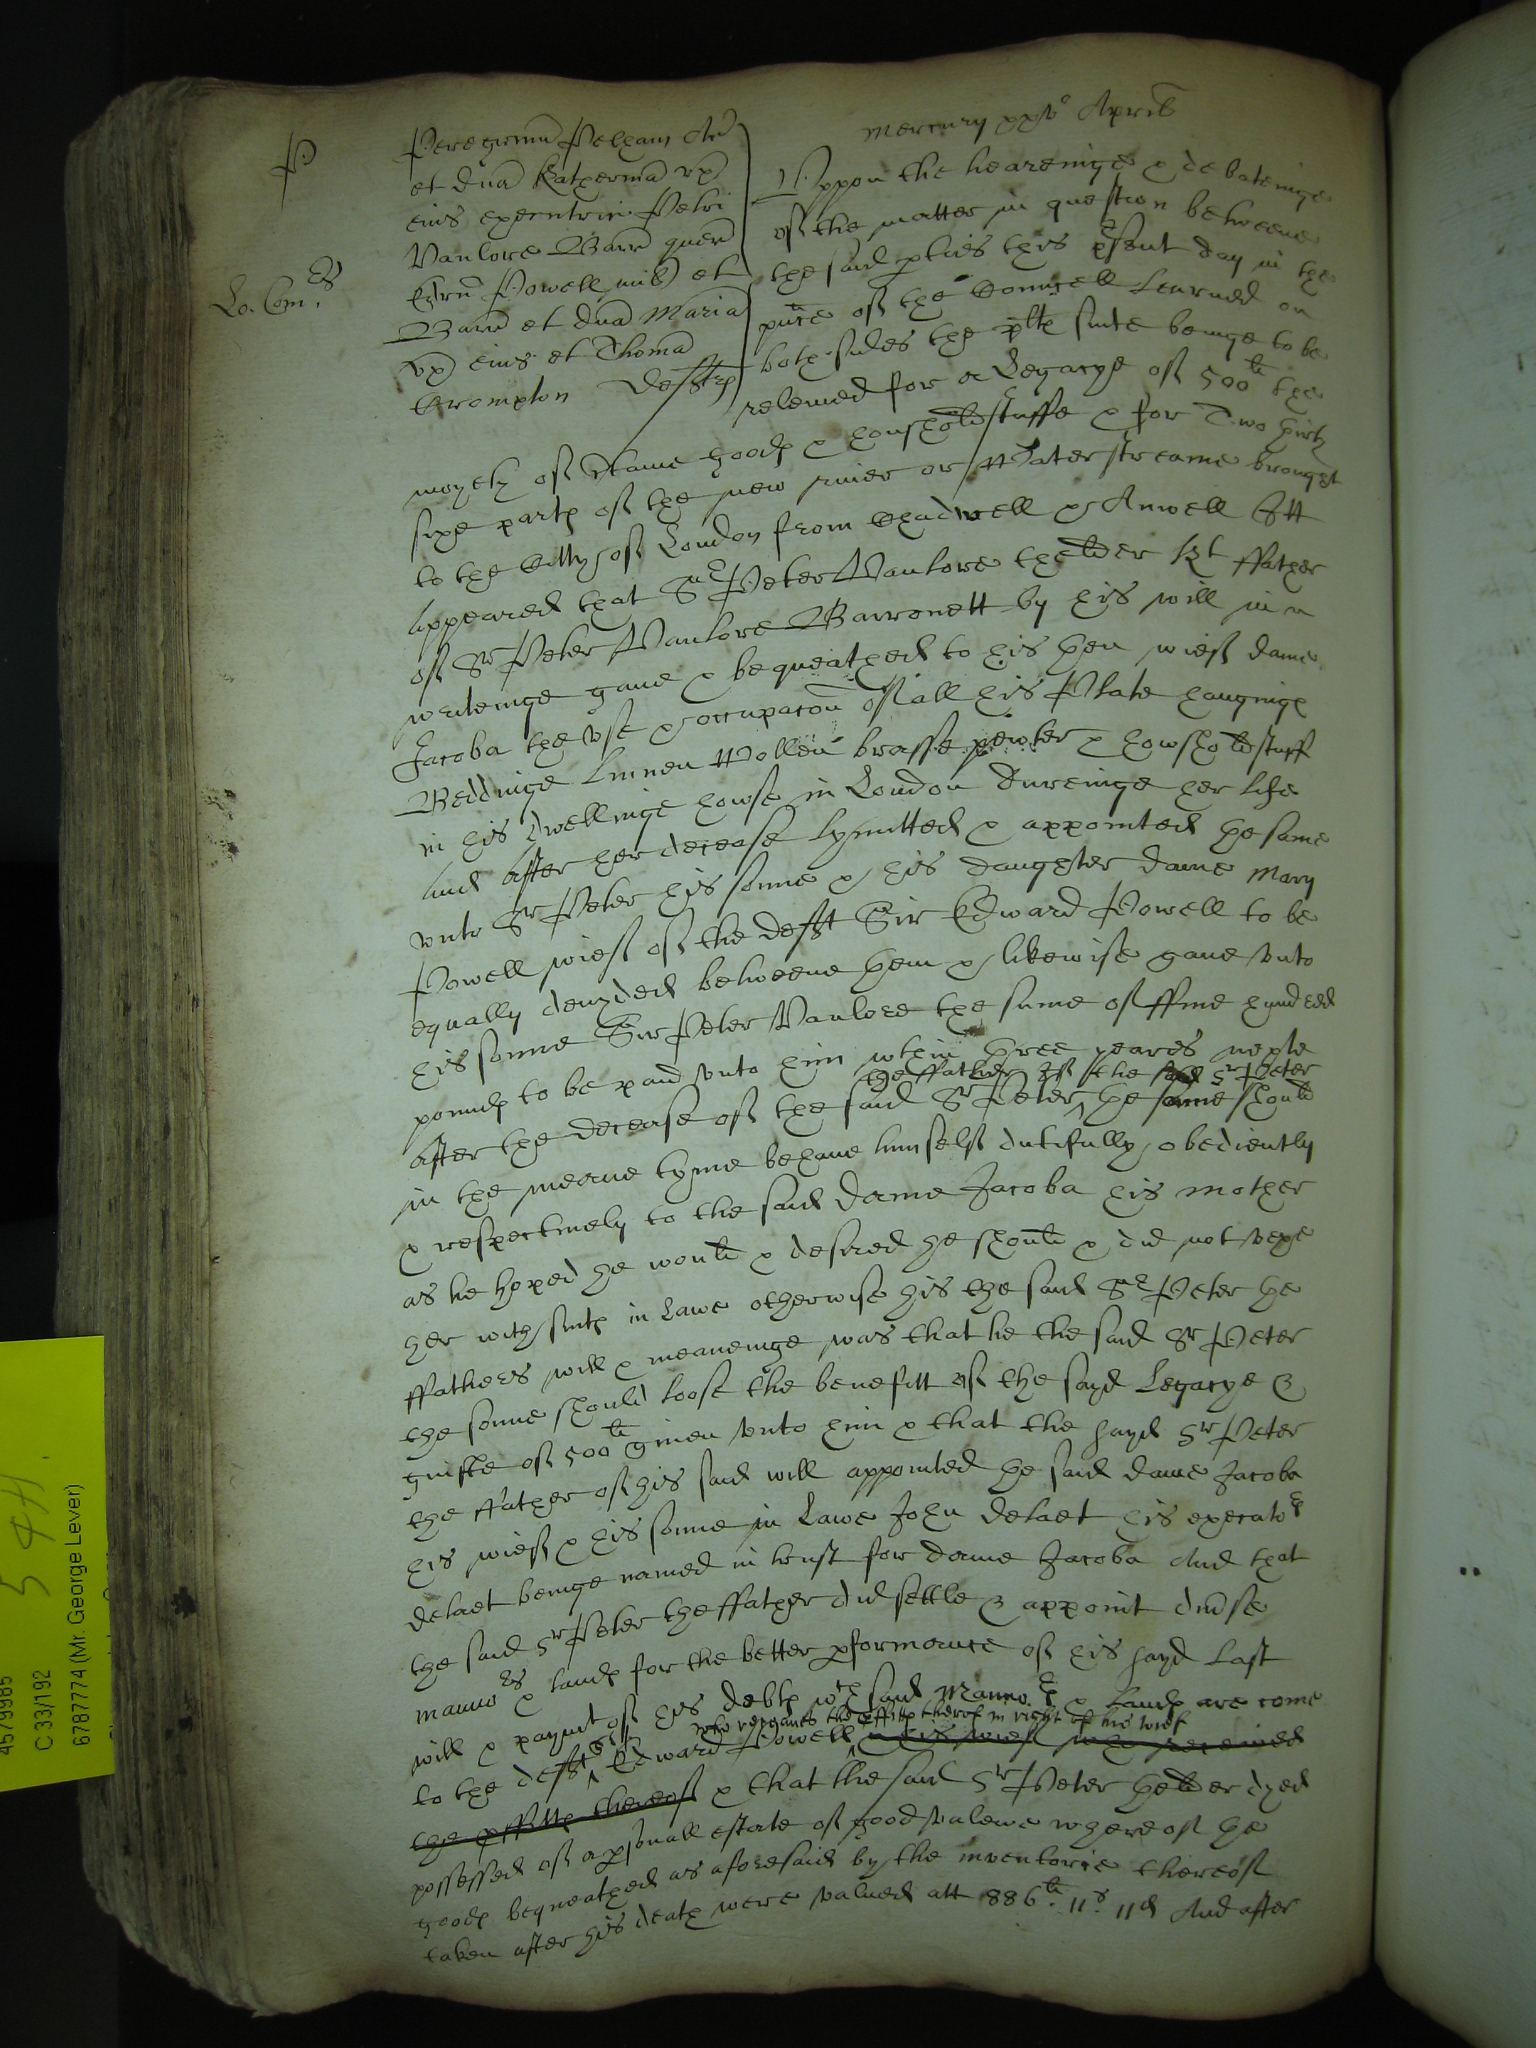 P
Lo. Com:rs
Peregrinu Pelham Ar
et dna Katherina ux
eius executrix Petri
Vanlore Barr quer
Edru Powell mil et
Barr et dna Maria
ux eius et Thoma
Crompton defts
Mercurij xxv° Aprilis
Uppon the heareinge & debateinge
of the matter in question betweene
the said pties this psent day in the
pnce of the Councell Learned on
both sides the plts suite beinge to be
releived for a Legacye of 500li the
moyety of Some goods & houshold stuffe & for Two thirty
sixe parts of the new river or Waterstreame brought
to the Citty of London from Chadwell & Amwell Itt
appeared that Sr Peter Vanlore thelder Kt ffather
of Sr Peter Vanlore Barronett by his will in
writeinge gave & bequeathed to his then wief dame
Jacoba the use & occupacon of all his Plate hangings
Beddinge Linnen Wollen brasse pewter & howshold stuff
in his dwellinge howse in London dureinge her life
And after her decease lymitted & appointed the same
unto Sr Peter his sonne & his daughter dame Mary
Powell wief of the deft Sir Edward Powell to be
equally devyded betweene them & likewise gave unto
his sonne Sir Peter Vanlore the sume of ffive hundred
pounds to be paid unto him wthin three yeares nexte
the ffather If the said Sr Peter
after the decease of the said Sr Peter ^ the sonne should
in the meane tyme behave himself dutifully obediently
& respectively to the said dame Jacoba his mother
as he hoped he would & desired he should & did not vexe
her with suits in Lawe otherwise his the said Sr Peter the
ffathers will & meaneinge was that he the said Sr Peter
the sonne should loose the benefitt of the sayd Legacye &
guifte of 500li given unto him & that the sayd Sr Peter
the ffather of his said will appointed the said dame Jacoba
his wief & his sonne in Lawe John delaet his executors
delaet beinge named in trust for dame Jacoba And that
the said Sr Peter the ffather did settle & appoint divse
mannors & lands for the better pformance of his sayd Last
will & paymt of his debts wch said Mannors & Lands are come
who receaves the pffitts thereof in right of his wief
to the deft Sr ^ Edward Powell ^ & his wief who received
the pffitts thereof & that the said Sr Peter thelder dyed
possessed of a psonall estate of good valewe whereof the
goods bequeathed as aforesaid by the inventorie thereof
taken after his death were valued att 886li. 11s. 11d And after
4579985
C 33/192
6787774 (Mr. George Lever)